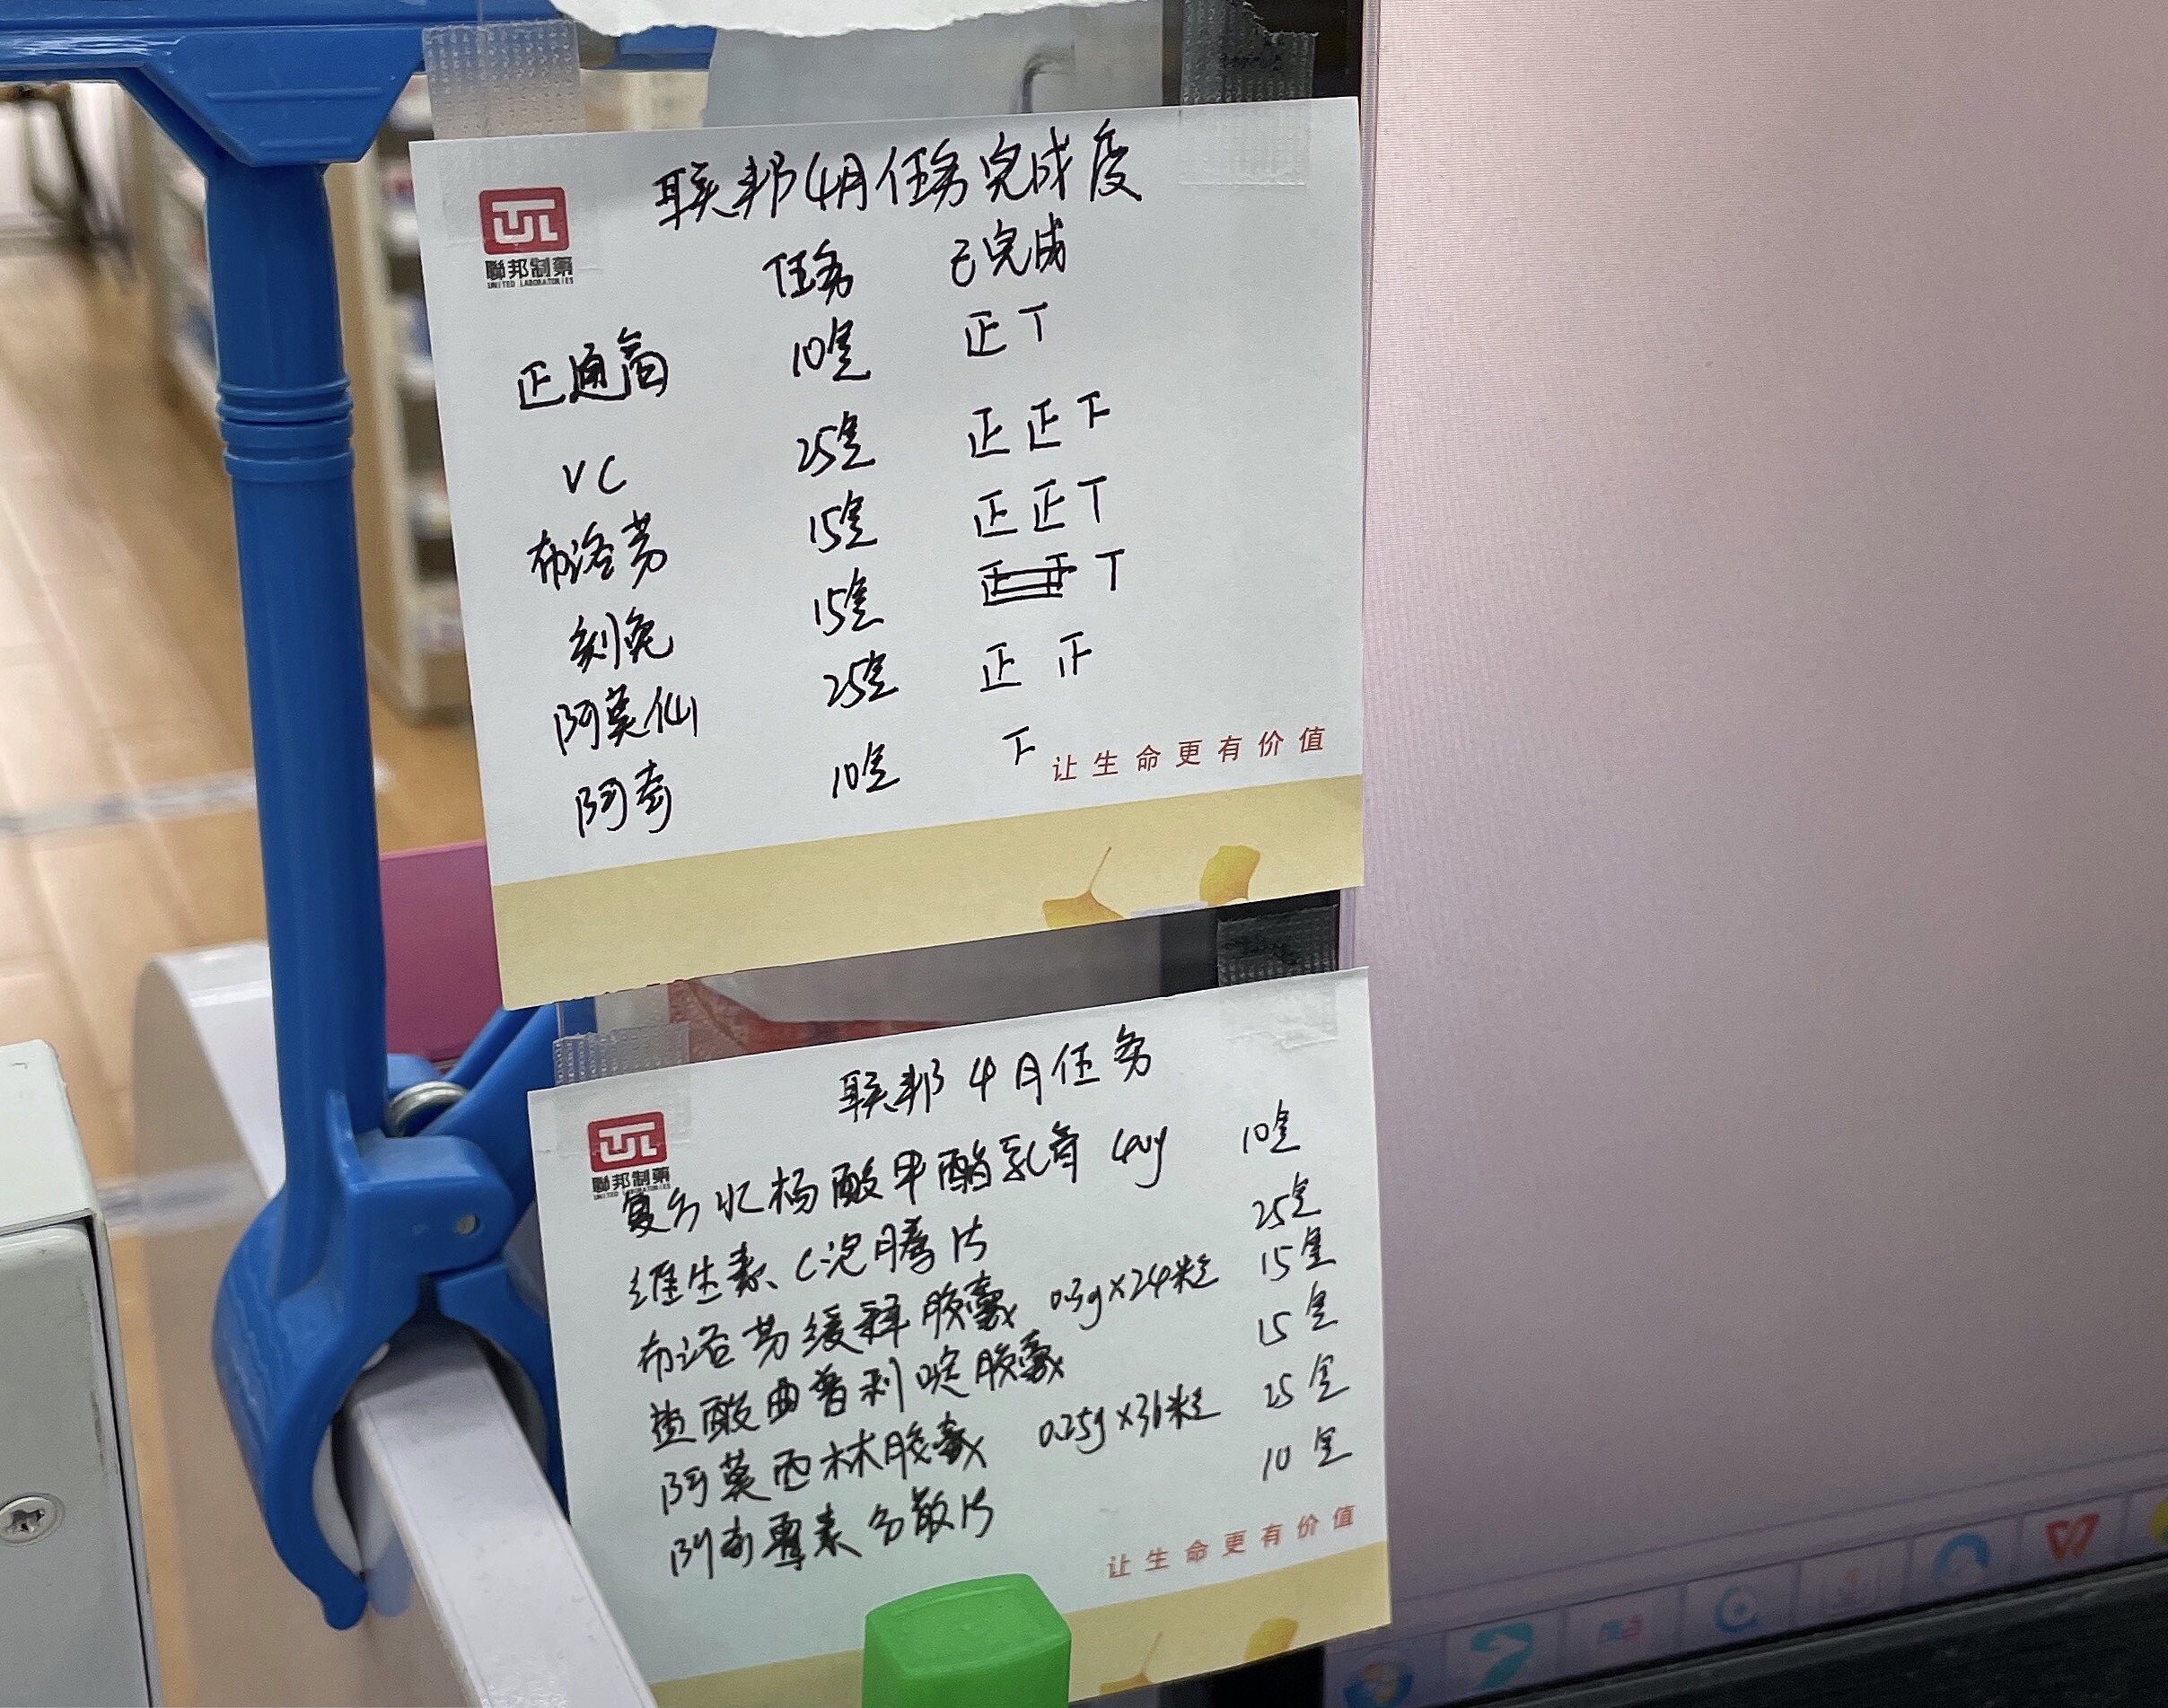 联邦4月任务完成度
聯邦制藥
UNITED LABORATORIES
任务 已完成
正通筒 10盒 正丅
VC 25盒 正正下
布洛芬 15盒 正正丅
刻免 15盒 丅
阿莫仙 25盒 正 正
阿奇 10盒 下
让生命更有价值
联邦4月任务
聯邦制藥
复方水杨酸甲酯乳膏 40g 10盒
维生素C泡腾片 25盒
布洛芬缓释胶囊 0.3g×24粒 15盒
盐酸曲普利啶胶囊 15盒
阿莫西林胶囊 0.25g×36粒 25盒
阿奇霉素分散片 10盒
让生命更有价值